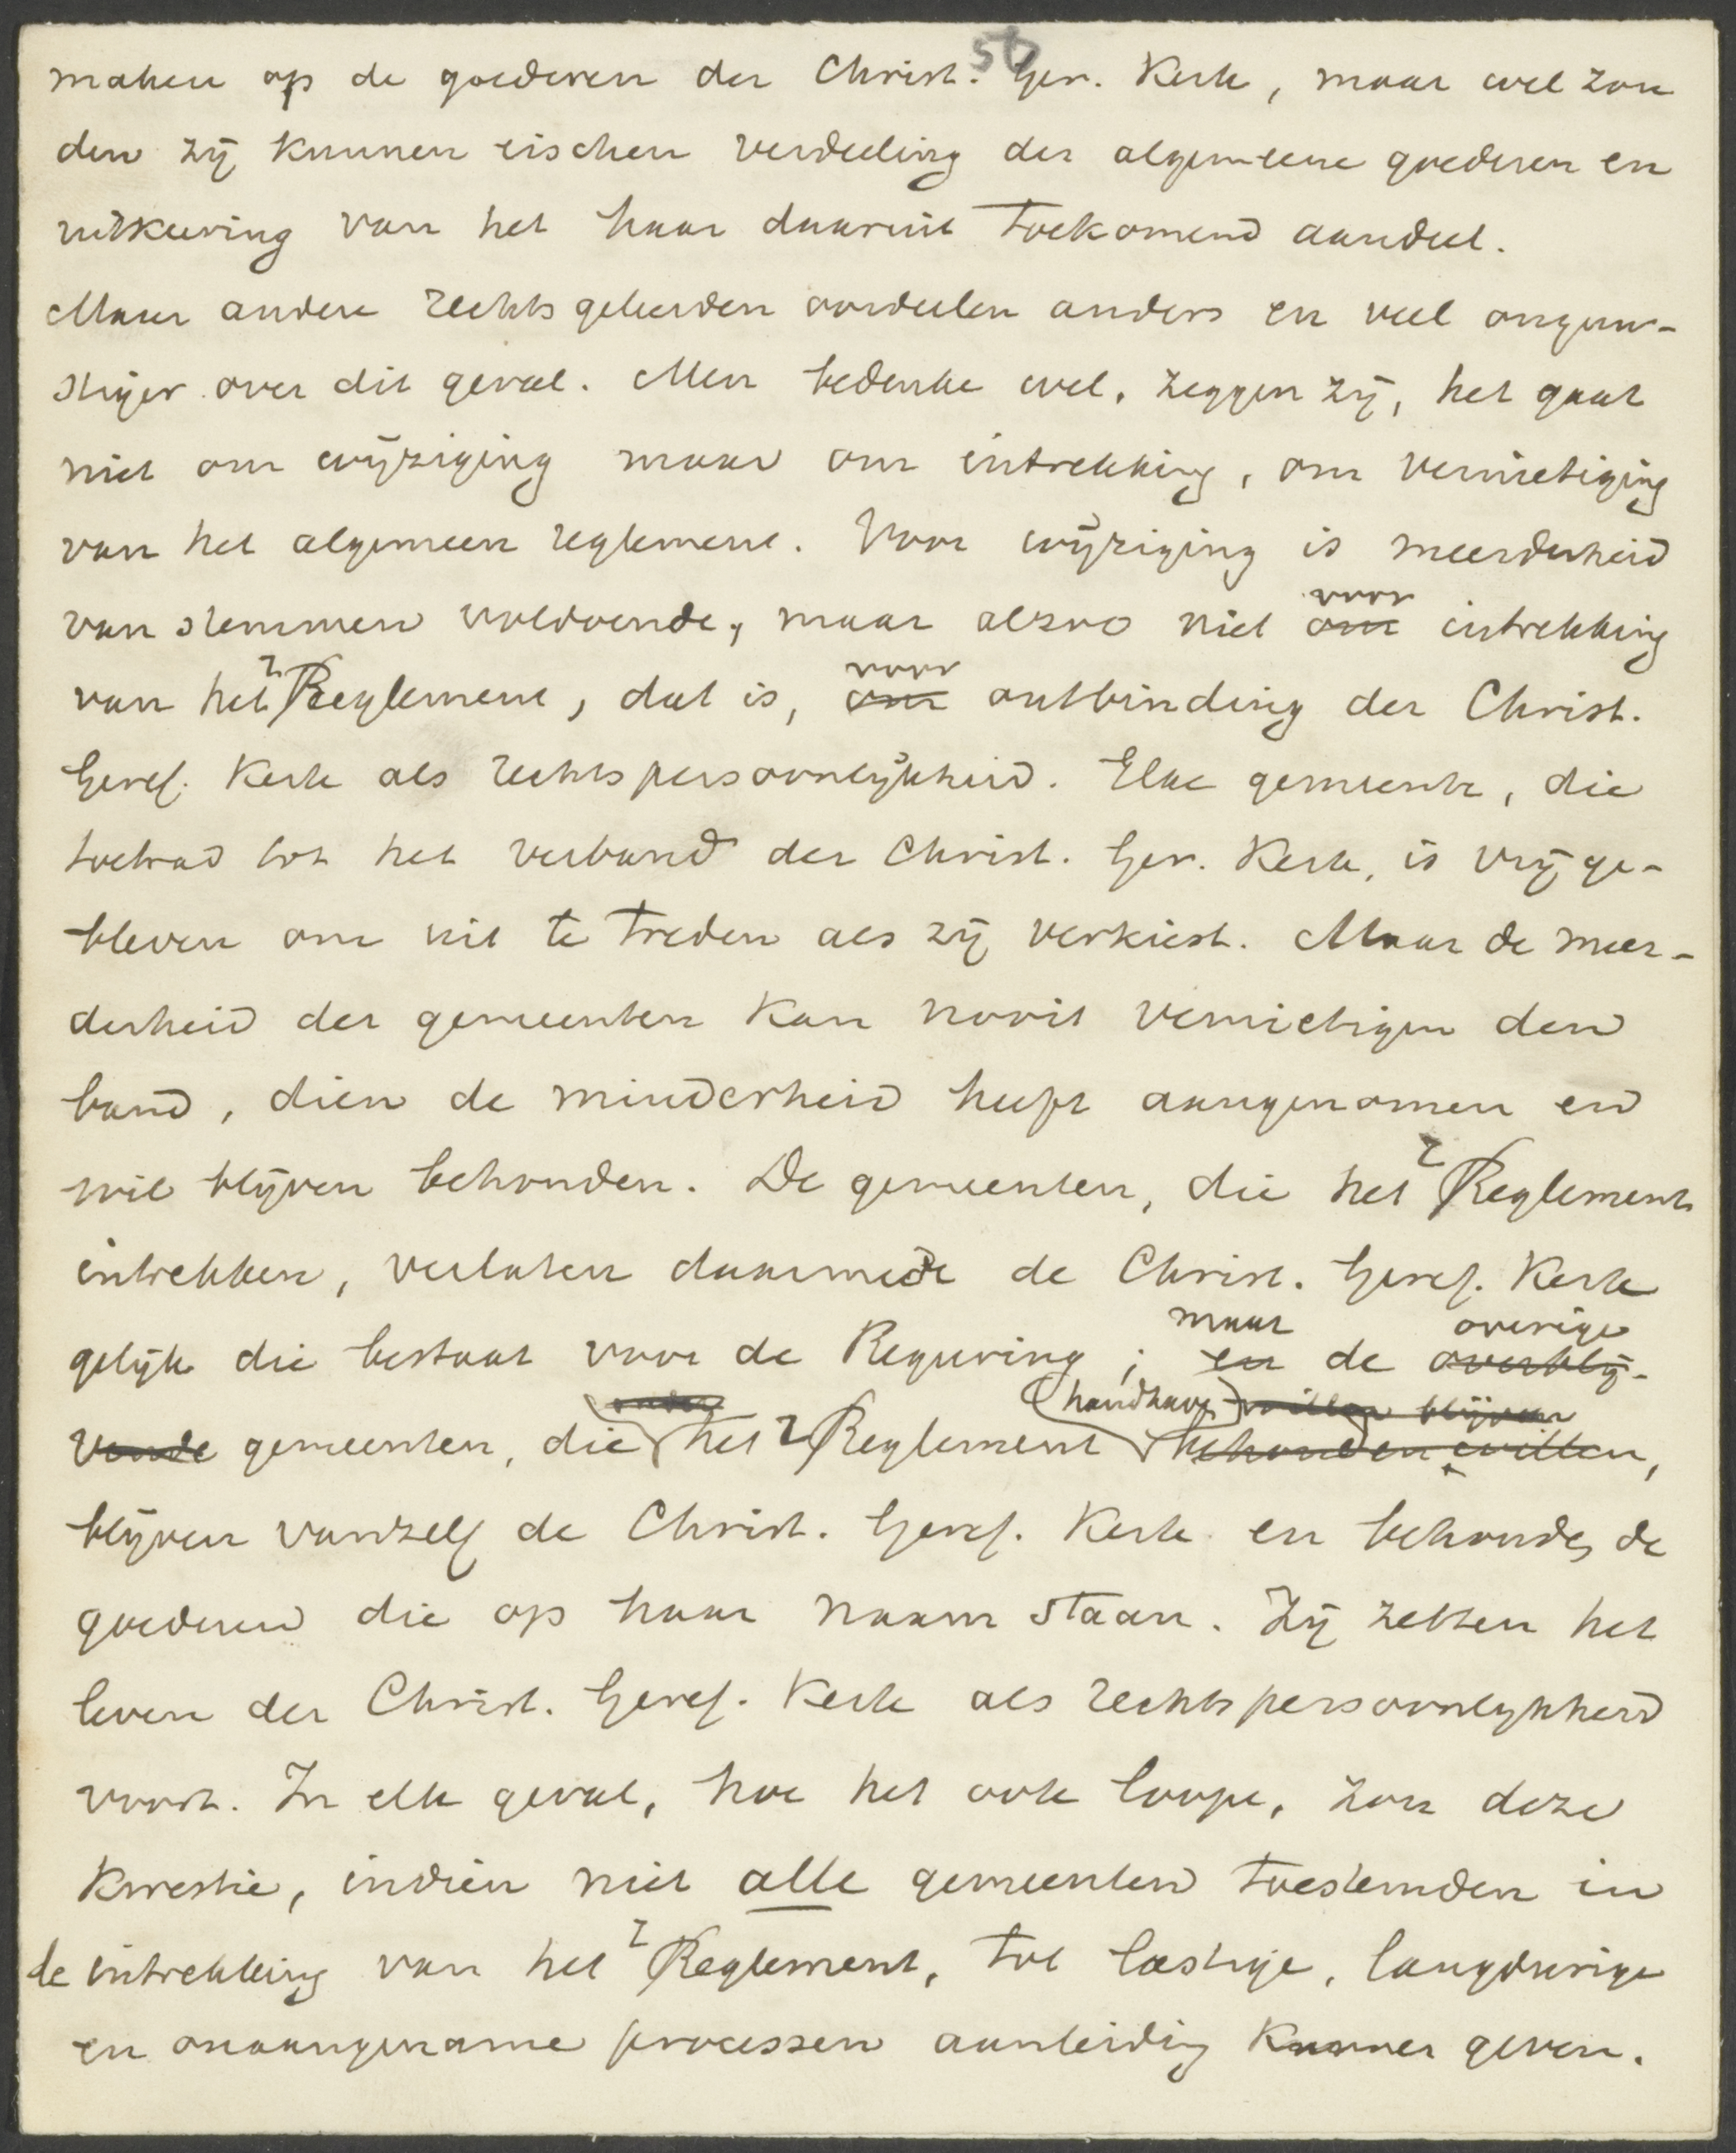 50
maken op de goederen der Christ. Ger. Kerk, maar wel zou
den zij kunnen eischen verdeeling der algemeene goederen en
uitkeering van het haar daaruit toekomend aandeel.
Maar andere rechtsgeleerden oordeelen anders en veel ongun-
stiger over dit geval. Men bedenke wel, zeggen zij, het gaat
niet om wijziging maar om intrekking, om vernietiging
van het algemeen reglement. Voor wijziging is meerderheid
van stemmen voldoende, maar alzoo niet om voor intrekking
van het r Reglement, dat is, om voor ontbinding der Christ.
Geref. Kerk als rechtspersoonlijkheid. Elke gemeente, die
toetrad tot het verband der Christ. Ger. Kerk, is vrij ge-
bleven om uit te treden als zij verkiest. Maar de meer-
derheid der gemeenten kan nooit vernietigen den
band, dien de minderheid heeft aangenomen en
wil blijven behouden. De gemeenten, die het r Reglement
intrekken, verlaten daarmede de Christ. Geref. Kerk
gelijk die bestaat voor de Regeering; en maar de overblij- overige
vende gemeenten, die onder het r Reglement handhaven willen blijven behouden willen,
blijven vanzelf de Christ. Geref. Kerk en behouden de
goederen die op haar naam staan. Zij zetten het
leven der Christ. Geref. Kerk als rechtspersoonlijkheid
voort. In elk geval, hoe het ook loope, zou deze
kwestie, indien niet alle gemeenten toestemden in
de intrekking van het r Reglement, tot lastige, langdurige
en onaangename processen aanleiding kunnen geven.